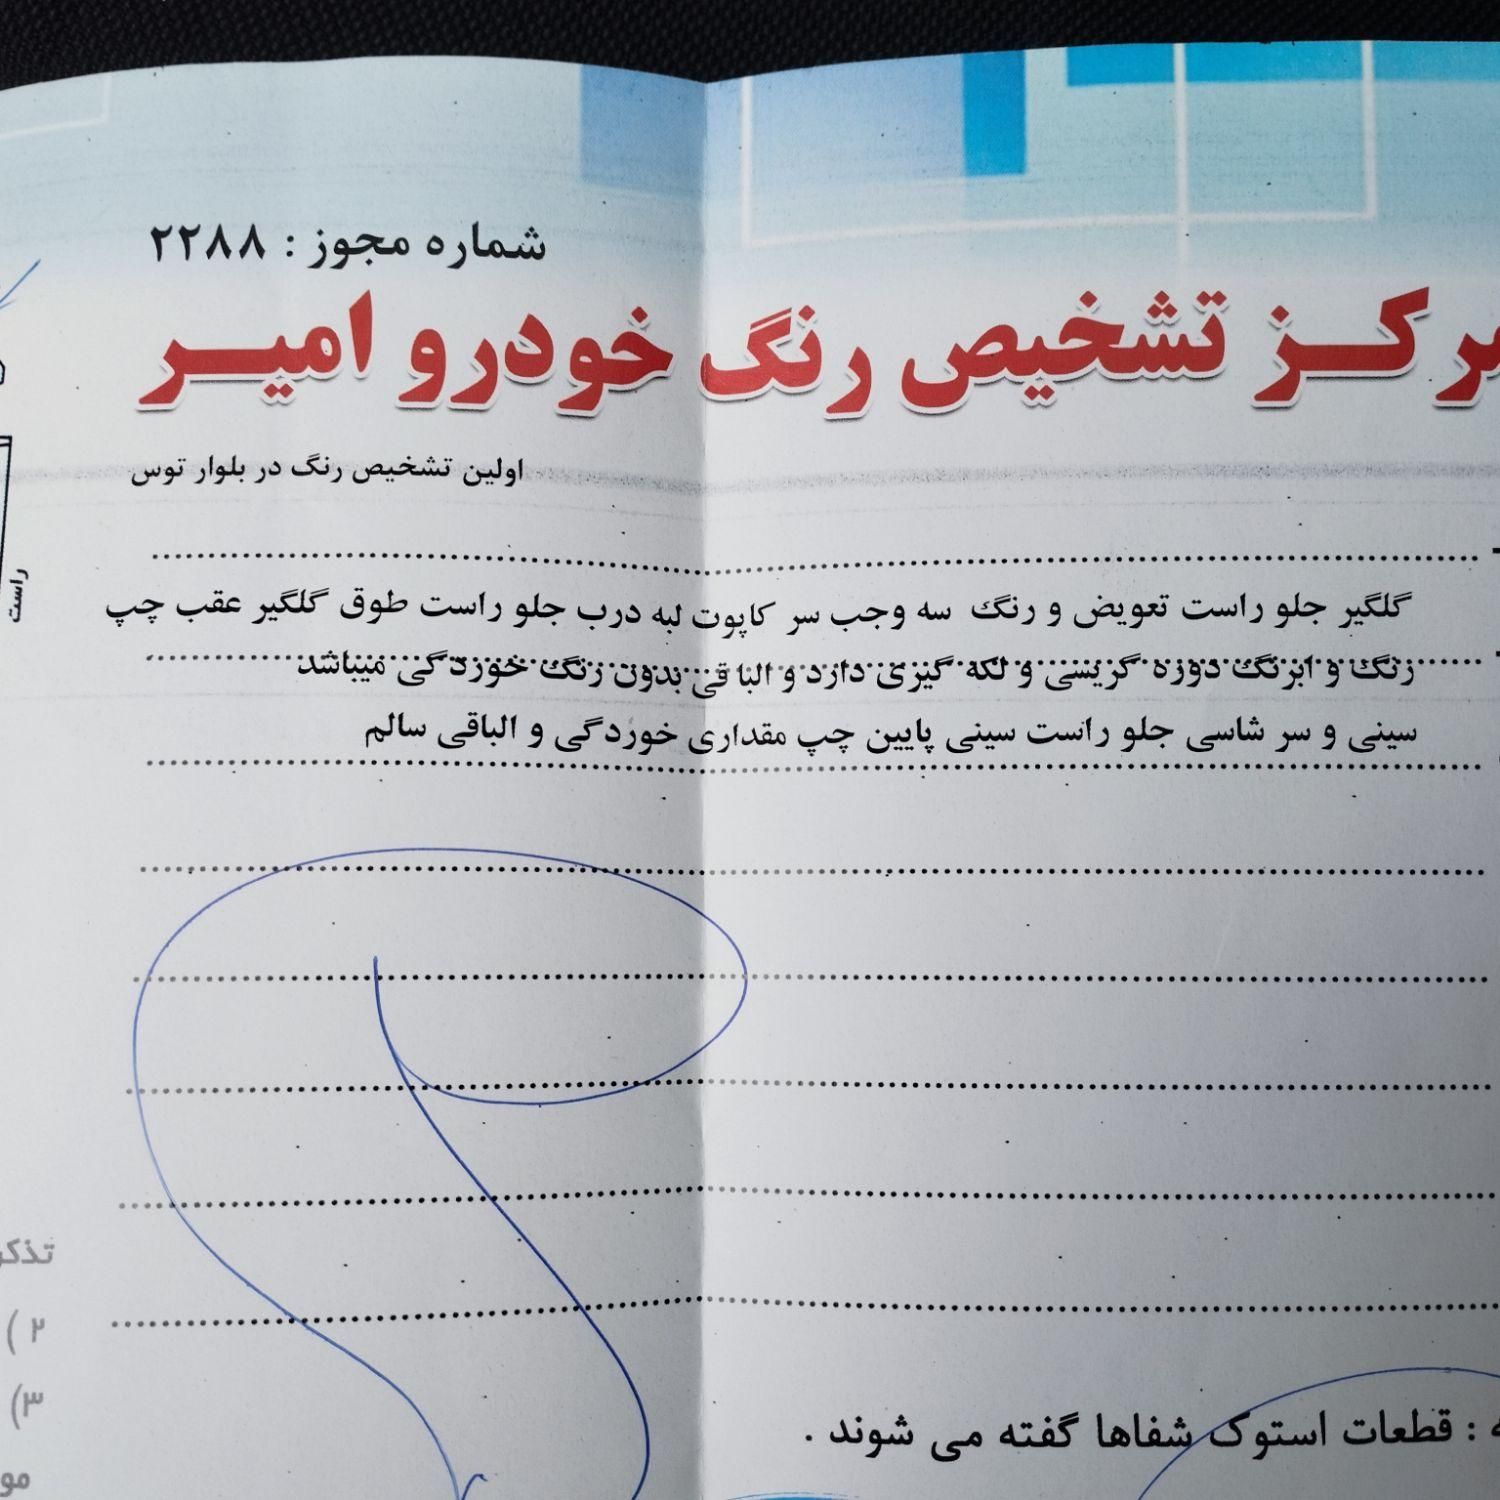 شماره مجوز : ۲۲۸۸
مرکز تشخیص رنگ خودرو امیر
اولین تشخیص رنگ در بلوار توس
راست
گلگیر جلو راست تعویض و رنگ سه وجب سر کاپوت لبه درب جلو راست طوق گلگیر عقب چپ
رنگ و ابرنگ دوزه گریسی و لکه گیزی دارد و البا قی بدون رنگ خوزدگی میباشد
سینی و سر شاسی جلو راست سینی پایین چپ مقداری خوزدگی و الباقی سالم
تذکر
۲ )
۳)
مو
: قطعات استوک شفاها گفته می شوند .